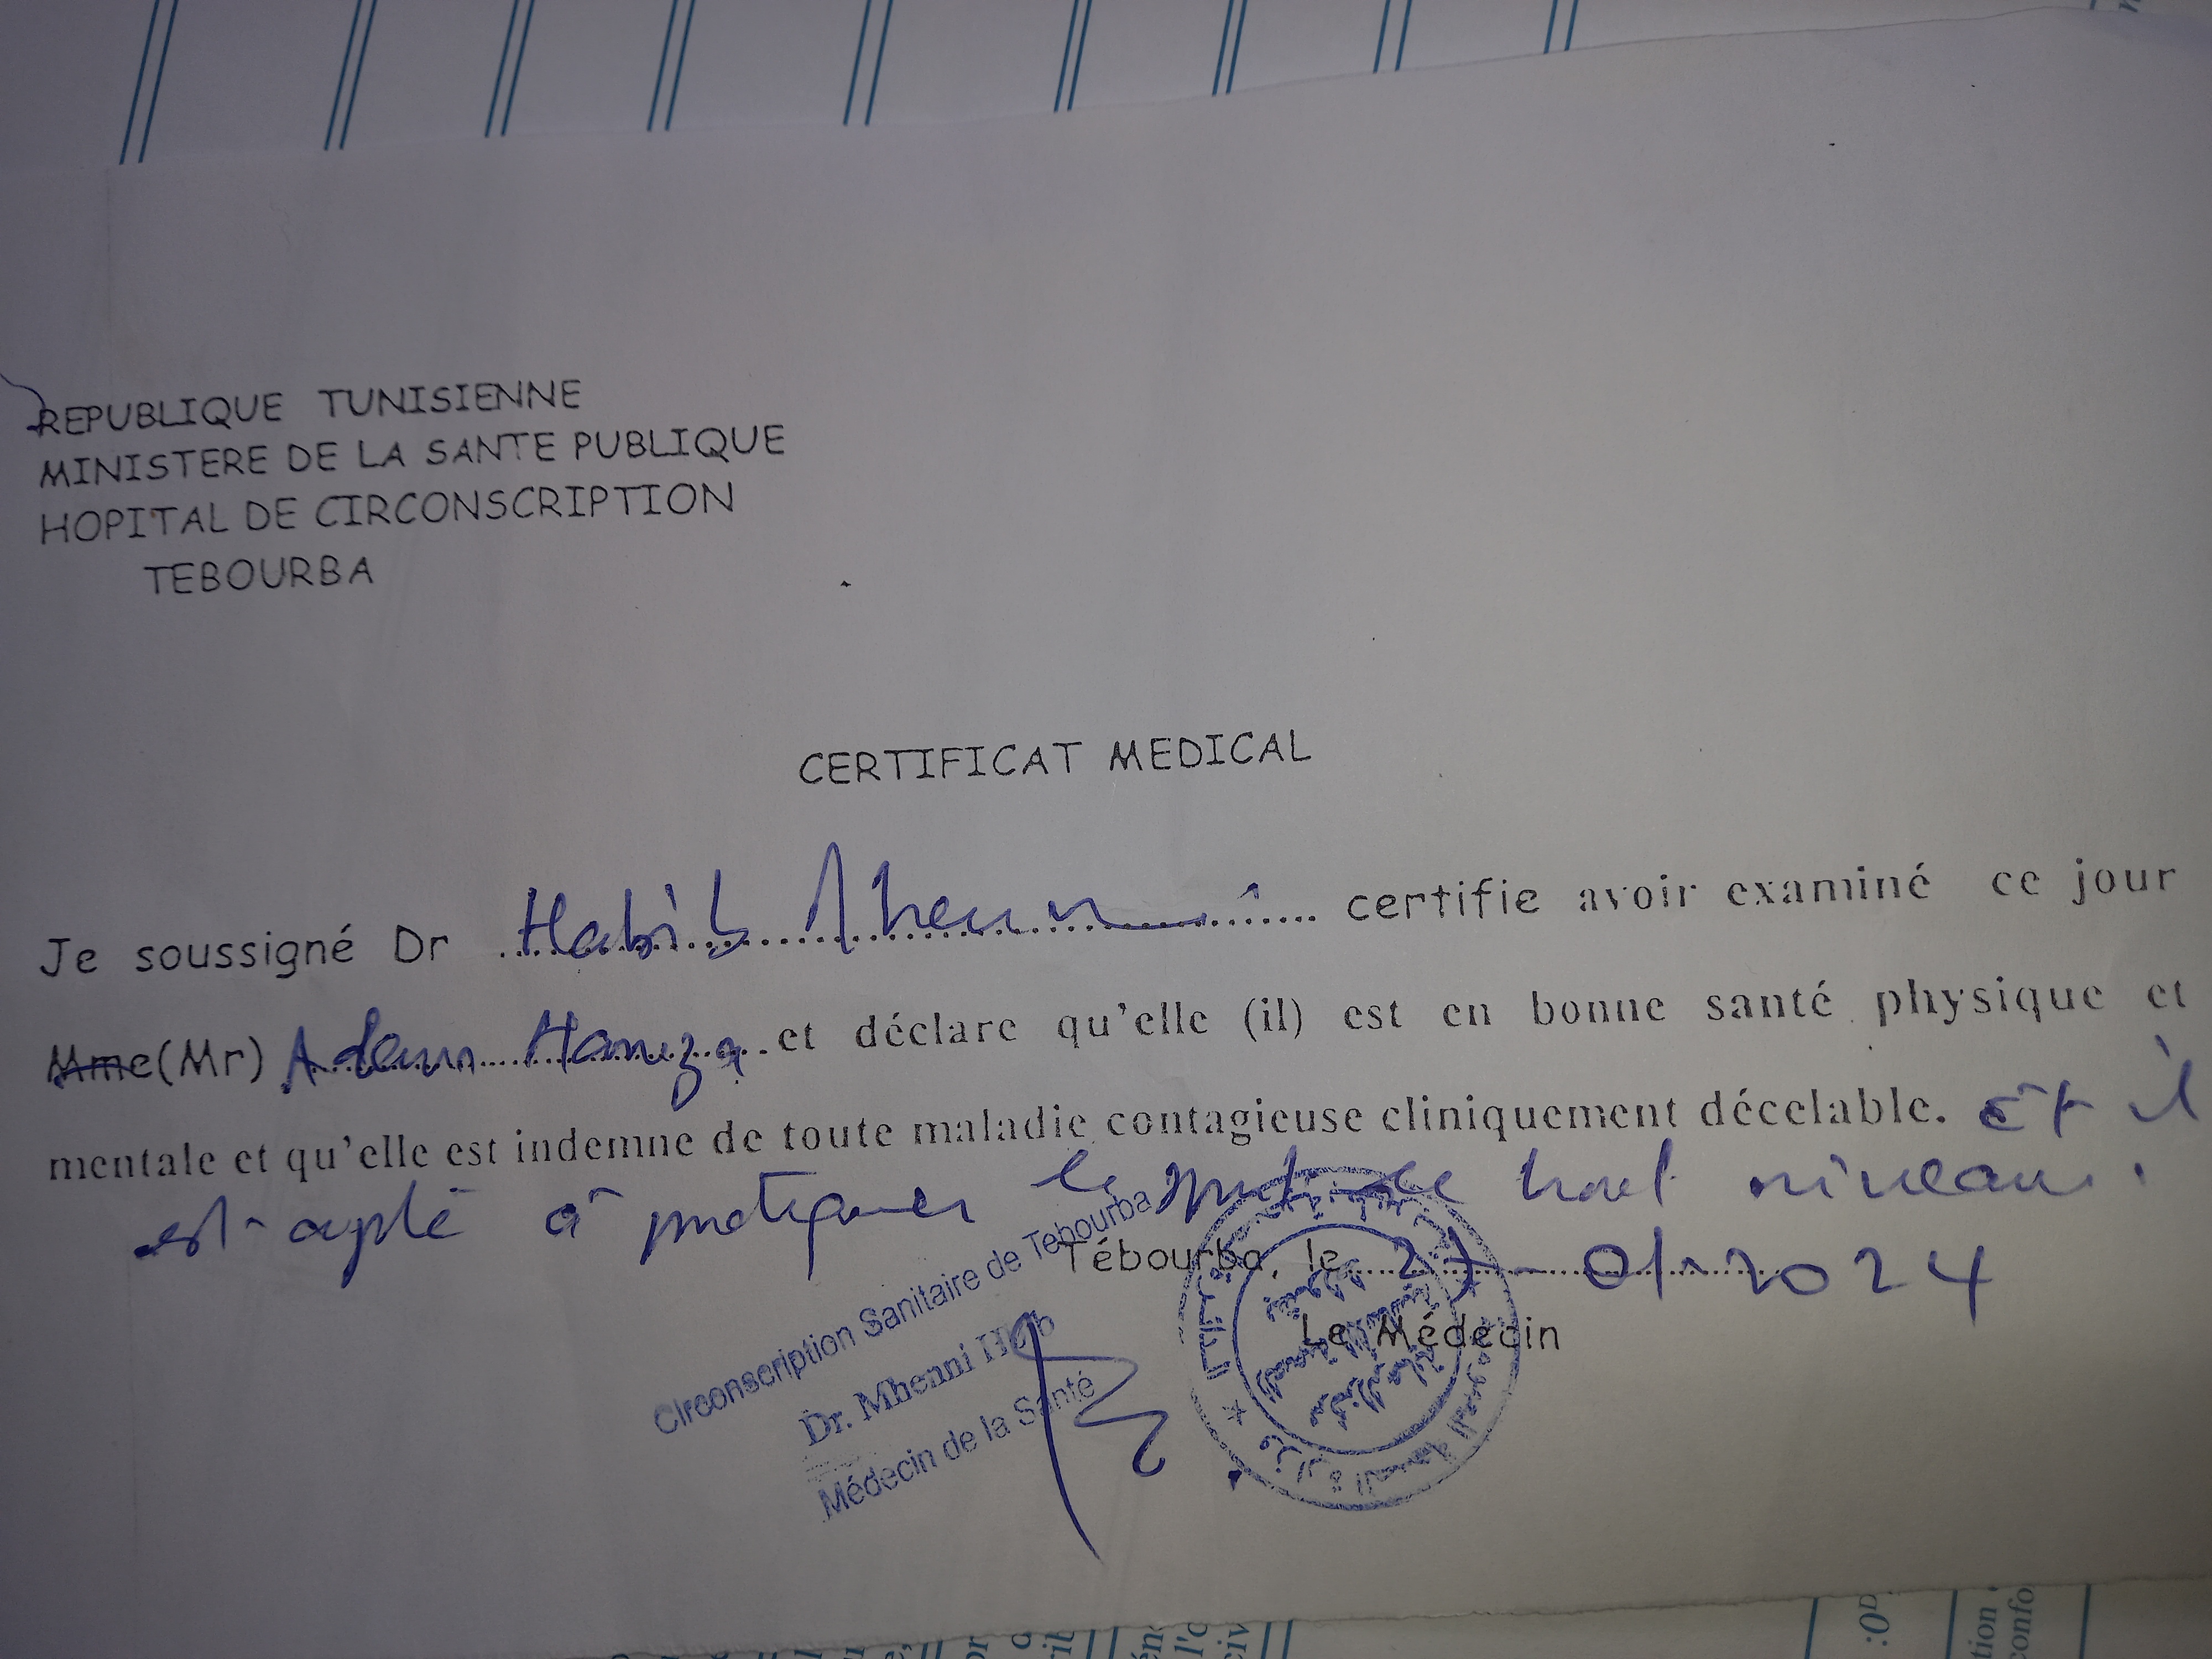 REPUBLIQUE TUNISIENNE
MINISTERE DE LA SANTE PUBLIQUE
HOPITAL DE CIRCONSCRIPTION
TEBOURBA
CERTIFICAT MEDICAL
Je soussigné Dr Habib Mhenni certifie avoir examiné ce jour
Mme(Mr) Adem Hamza et déclare qu'elle (il) est en bonne santé physique et
mentale et qu'elle est indemne de toute maladie contagieuse cliniquement décelable. et il
est apte à pratiquer le sport de haut niveau.
Tébourba, le 27-01-2024
Le Médecin
Circonscription Sanitaire de Tebourba
Dr. Mhenni
Médecin de la Santé